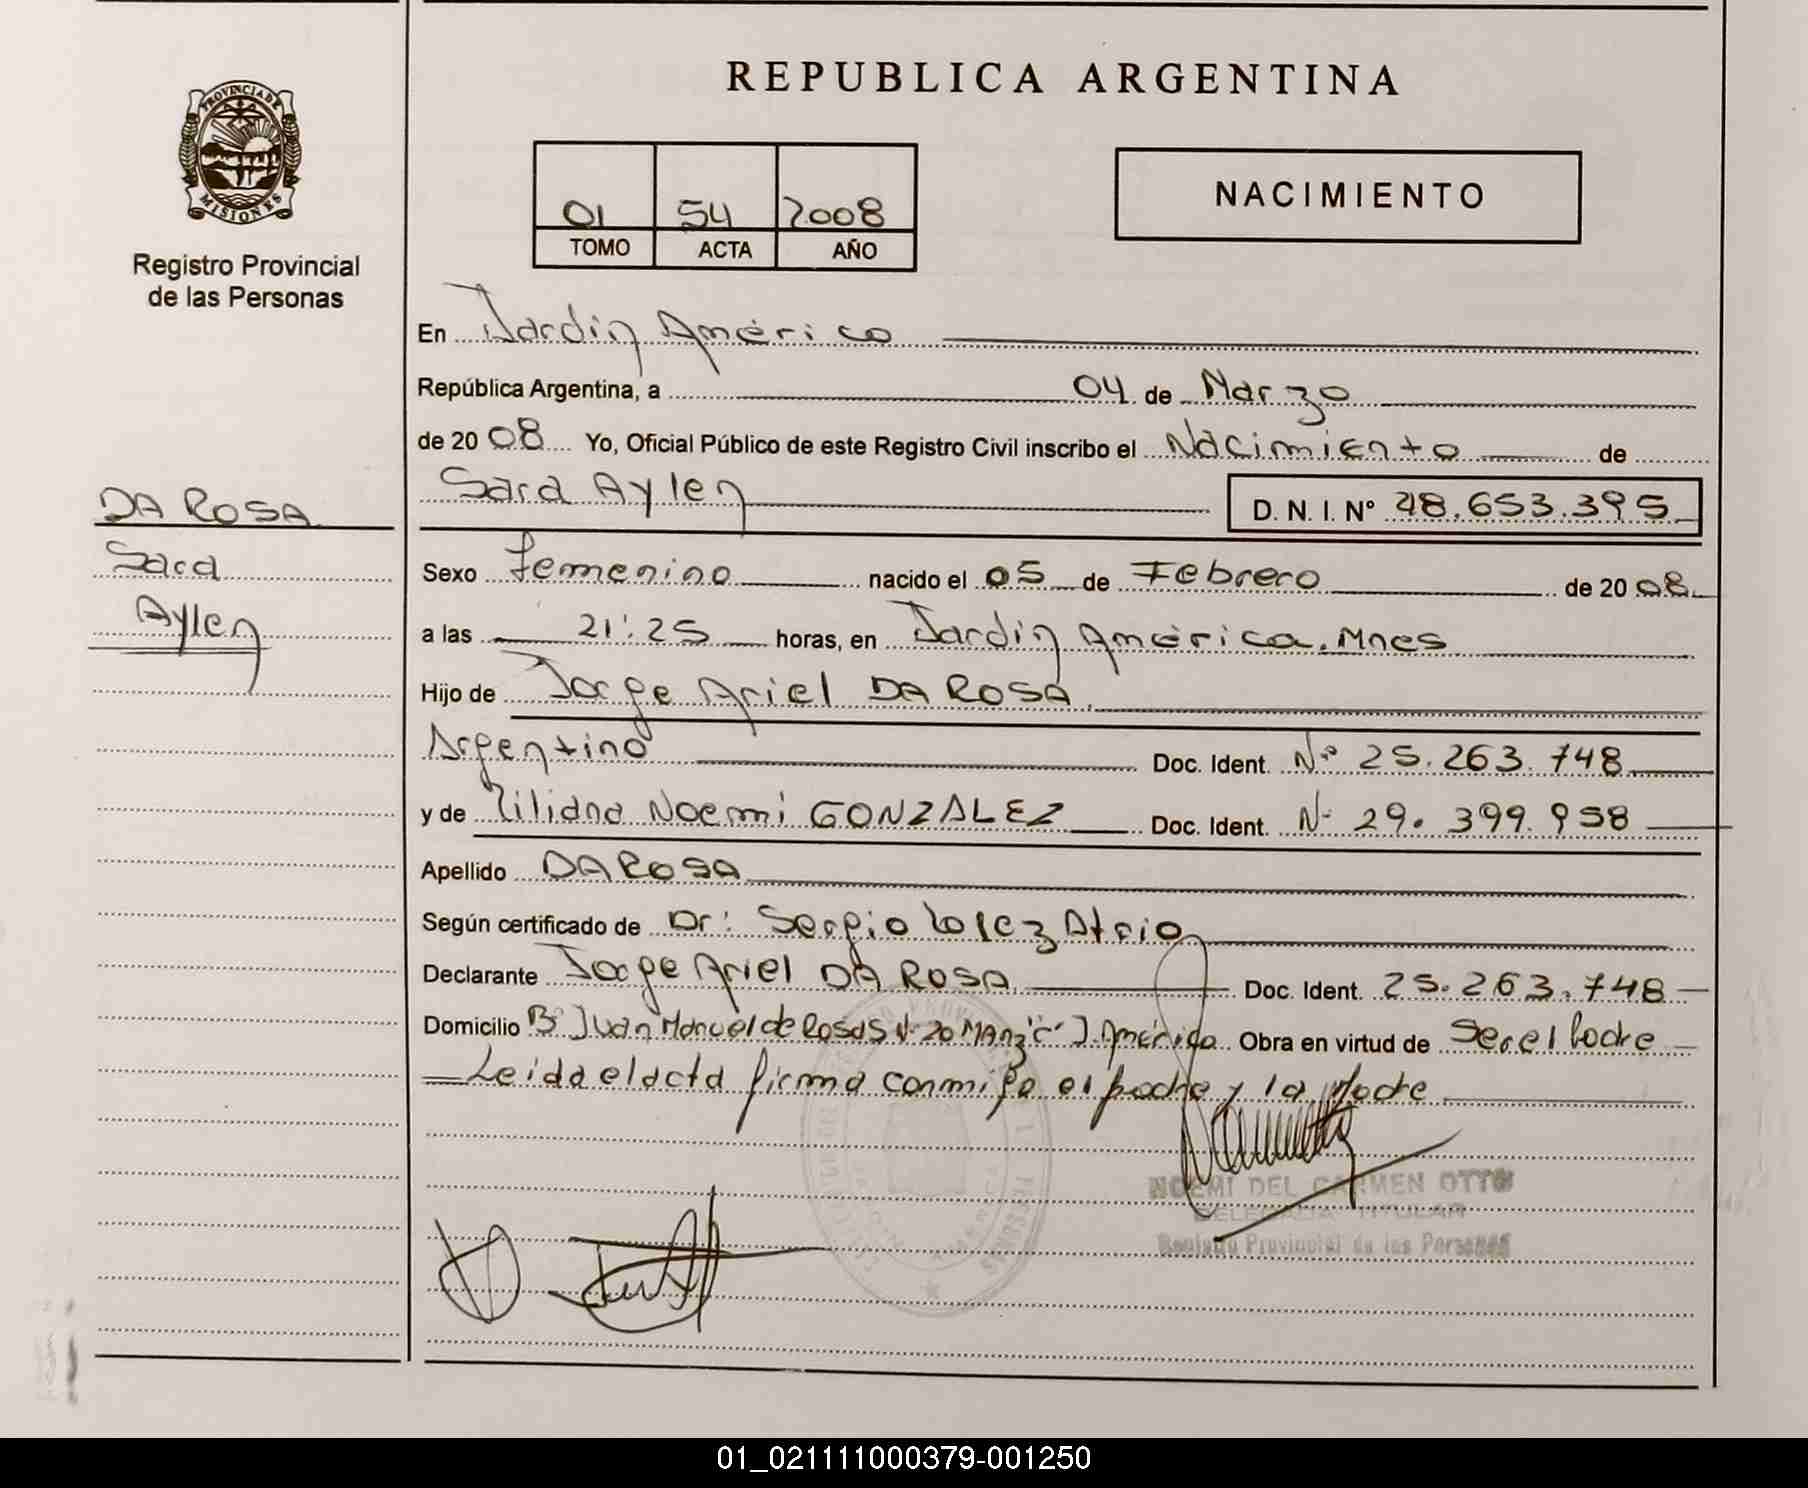 PROVINCIA DE
MISIONES
Registro Provincial
de las Personas
REPUBLICA ARGENTINA
01 54 2008
TOMO ACTA AÑO
NACIMIENTO
En Jardin América
República Argentina, a 04 de Marzo
de 2008 Yo, Oficial Público de este Registro Civil inscribo el Nacimiento de
Sara Aylen D. N. I. Nº 48.653.395
DA ROSA
Sara
Aylen
Sexo Femenino nacido el 05 de Febrero de 2008
a las 21:25 horas, en Jardin América. Mnes
Hijo de Jorge Ariel DA ROSA
Argentino Doc. Ident. Nº 25.263.748
y de Liliana Noemi GONZALEZ Doc. Ident. Nº 29.399.958
Apellido DA ROSA
Según certificado de Dr: Sergio Lopez Atrio
Declarante Jorge Ariel DA ROSA Doc. Ident. 25.263.748
Domicilio Bº Juan Manuel de Rosas Nº 20 Manz "C" J. América Obra en virtud de Ser el Padre
Leida el acta firma conmigo el padre y la Madre
NOEMI DEL CARMEN OTTO
DELEGADA TITULAR
Registro Provincial de las Personas
01_021111000379-001250